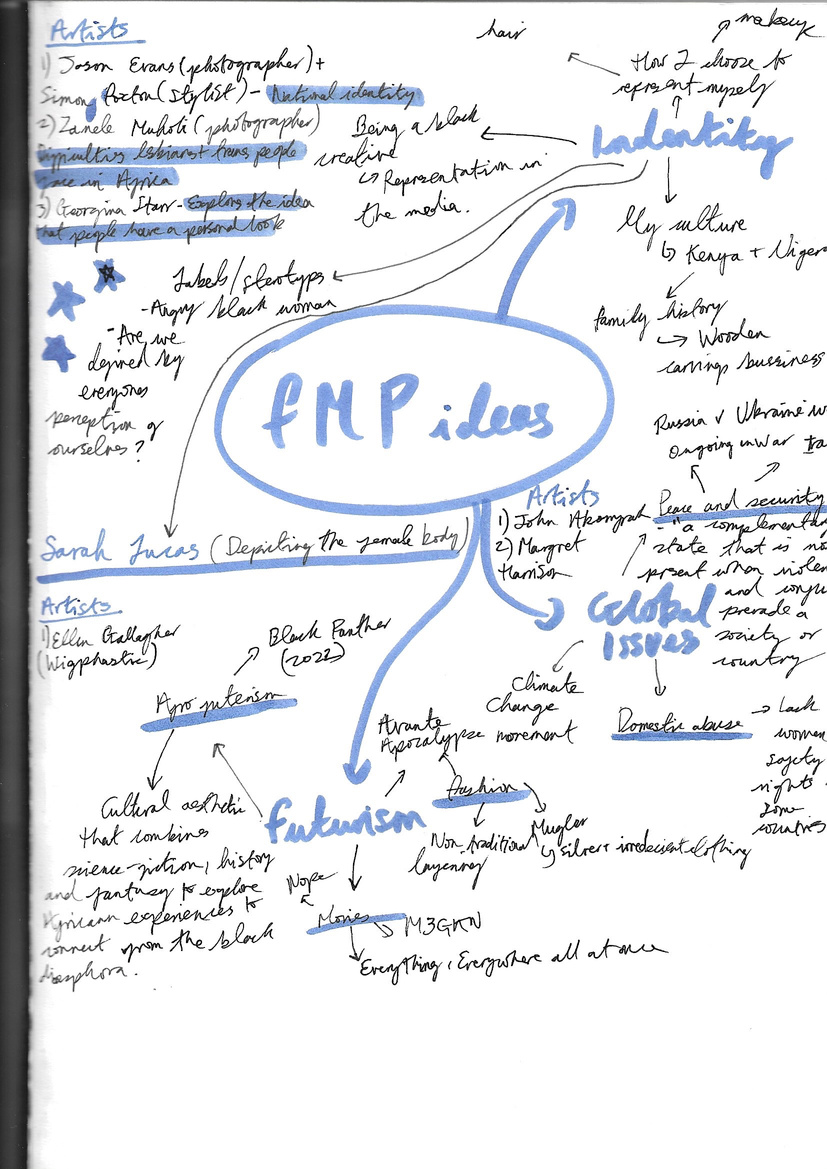 Artists
1) Jason Evans (photographer) +
Simon Foxton (stylist) - National identity
2) Zanele Muholi (photographer)
Difficulties lsbians + trans people
face in Africa
3) Georgina Starr - Explores the idea
that people have a personal look
hair
makeup
How I choose to
represent myself
Indentity
Being a black
creative
Representation in
the media.
My culture
Kenya +
family history
Wooden
carvings bussiness
Labels/sterotyps
- Angry black woman
- Are we
defined by
everyones
perception of
ourselves?
FMP ideas
Sarah Lucas (Depicting the female body)
Russia v Ukraine
ongoing war
Peace and security
- "a complementary
state that is
present when
and
prevade a
society or
country
Artists
1) John Akomfrah
2) Margret
Harrison
Global
Issues
Climate
Change
movement
Domestic abuse
Lack
women
safety
rights
some
countries
Artists
1) Ellen Gallagher
(Wigphastic)
Black Panther
Afro futerism
Cultural aesthetic
that combines
science-fiction, history
and fantasy to explore
Africann experiences to
connect from the black
diasphora.
Futurism
Avante
Apocalypse
Fashion
Non-traditional
layering
Mugler
silver + irredecient clothing
Nope
Movies
M3GAN
Everything, Everywhere all at once